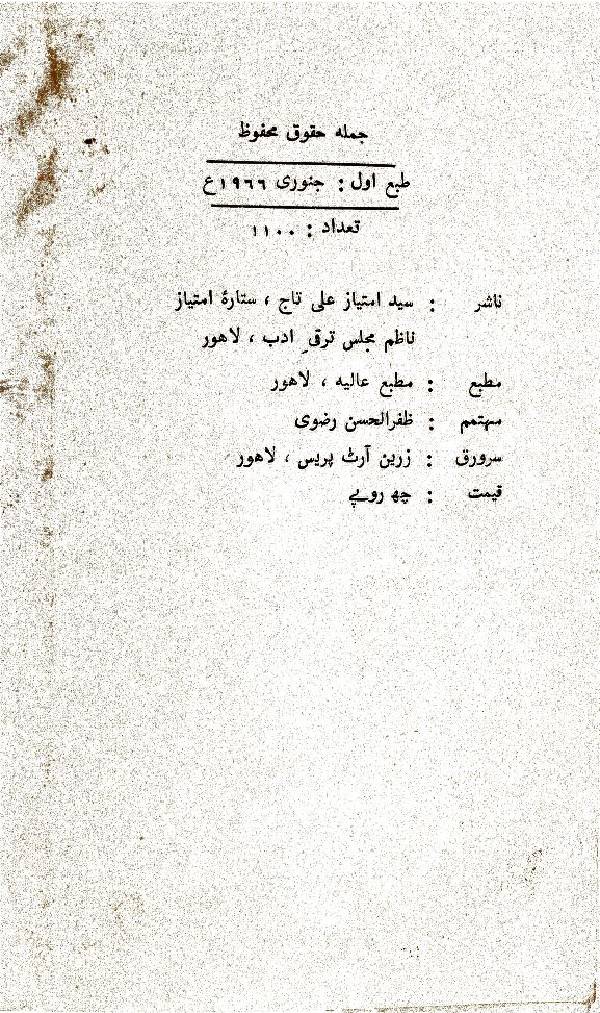 جملہ حقوق محفوظ
طبع اول : جنوری ۱۹۶۶ع
تعداد : ۱۱۰۰
ناشر : سید امتیاز علی تاج ، ستارۂ امتیاز
ناظم مجلس ترقیِ ادب ، لاہور
مطبع : مطبع عالیہ ، لاہور
مہتمم : ظفرالحسن رضوی
سرورق : زرین آرٹ پریس ، لاہور
قیمت : چھ روپے